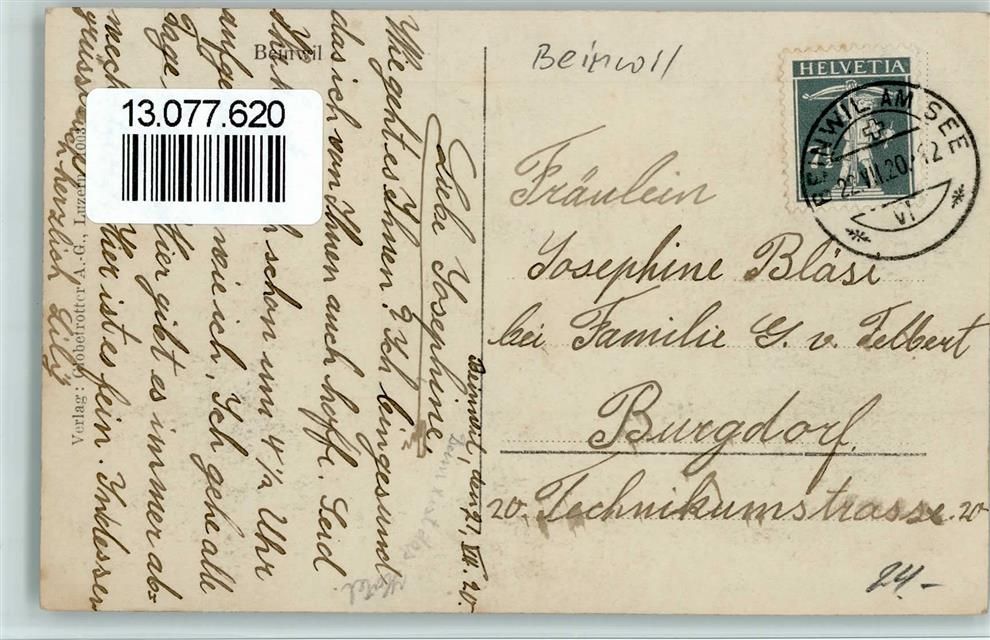 Beinwil, den 21. VII. 20.
Liebe Josephine,
Wie geht es Ihnen? Ich bin gesund
das ich von Ihnen auch hoffe. Seid
schon um 4½ Uhr
wie ich, Ich gehe alle
Tage. Hier gibt es immer ab-
wech Hier ist es fein. Indessen
grüsst herzlich Lily
Beinwil
Verlag: Globetrotter A.-G., Luzern
13.077.620
Beinwil
HELVETIA
BEINWIL AM SEE
22.VII.20.-12
VI
Fräulein
Josephine Bläsi
bei Familie G. v. Felbert
Burgdorf.
20. Technikumstrasse. 20
Hotel
24.-